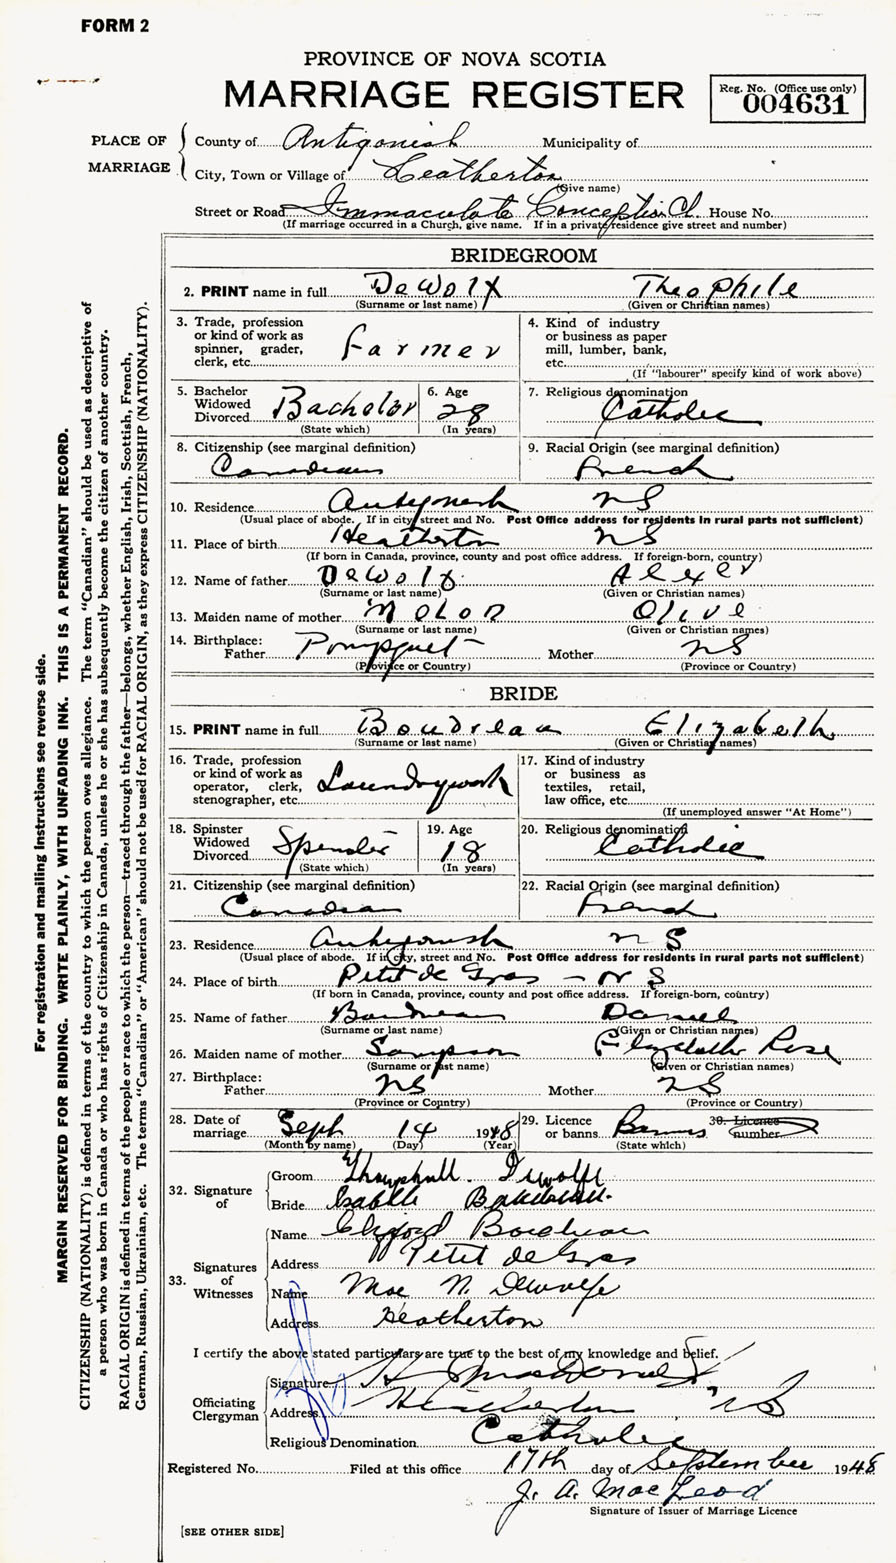 FORM 2
PROVINCE OF NOVA SCOTIA
MARRIAGE REGISTER
Reg. No. (Office use only)
004631
PLACE OF MARRIAGE
County of Antigonish Municipality of
City, Town or Village of Heatherton
(Give name)
Street or Road Immaculate Conception Ch. House No.
(If marriage occurred in a Church, give name. If in a private residence give street and number)
BRIDEGROOM
2. PRINT name in full DeWolf Theophile
(Surname or last name) (Given or Christian names)
3. Trade, profession or kind of work as spinner, grader, clerk, etc. Farmer
4. Kind of industry or business as paper mill, lumber, bank, etc.
(If "labourer" specify kind of work above)
5. Bachelor Widowed Divorced Bachelor
(State which)
6. Age 28
(In years)
7. Religious denomination Catholic
8. Citizenship (see marginal definition) Canadian
9. Racial Origin (see marginal definition) French
10. Residence Antigonish NS
(Usual place of abode. If in city street and No. Post Office address for residents in rural parts not sufficient)
11. Place of birth Heatherton NS
(If born in Canada, province, county and post office address. If foreign-born, country)
12. Name of father DeWolf
(Surname or last name) (Given or Christian names)
13. Maiden name of mother Olive
(Surname or last name) (Given or Christian names)
14. Birthplace: Father Pomquet Mother NS
(Province or Country) (Province or Country)
BRIDE
15. PRINT name in full Boudreau Elizabeth
(Surname or last name) (Given or Christian names)
16. Trade, profession or kind of work as operator, clerk, stenographer, etc. Laundrywork
17. Kind of industry or business as textiles, retail, law office, etc.
(If unemployed answer "At Home")
18. Spinster Widowed Divorced Spinster
(State which)
19. Age 18
(In years)
20. Religious denomination Catholic
21. Citizenship (see marginal definition) Canadian
22. Racial Origin (see marginal definition) French
23. Residence Antigonish NS
(Usual place of abode. If in city, street and No. Post Office address for residents in rural parts not sufficient)
24. Place of birth Petit de Gras – NS
(If born in Canada, province, county and post office address. If foreign-born, country)
25. Name of father Boudreau Daniel
(Surname or last name) (Given or Christian names)
26. Maiden name of mother Sampson Rose
(Surname or last name) (Given or Christian names)
27. Birthplace: Father NS Mother NS
(Province or Country) (Province or Country)
28. Date of marriage Sept 14 1948
(Month by name) (Day) (Year)
29. Licence or banns Banns
(State which)
30. Licence number
32. Signature of
Groom
Bride
33. Signatures of Witnesses
Name Boudreau
Address Petit de Gras
Name Mae N. Dewolfe
Address Heatherton
I certify the above stated particulars are true to the best of my knowledge and belief.
Officiating Clergyman
Signature H. MacDonald
Address Heatherton NS
Religious Denomination Catholic
Registered No. Filed at this office 17th day of September 1948
J. A. MacLeod
Signature of Issuer of Marriage Licence
[SEE OTHER SIDE]
For registration and mailing instructions see reverse side.
MARGIN RESERVED FOR BINDING. WRITE PLAINLY, WITH UNFADING INK. THIS IS A PERMANENT RECORD.
CITIZENSHIP (NATIONALITY) is defined in terms of the country to which the person owes allegiance. The term "Canadian" should be used as descriptive of
a person who was born in Canada or who has rights of Citizenship in Canada, unless he or she has subsequently become the citizen of another country.
RACIAL ORIGIN is defined in terms of the people or race to which the person—traced through the father—belongs, whether English, Irish, Scottish, French,
German, Russian, Ukrainian, etc. The terms "Canadian" or "American" should not be used for RACIAL ORIGIN, as they express CITIZENSHIP (NATIONALITY).